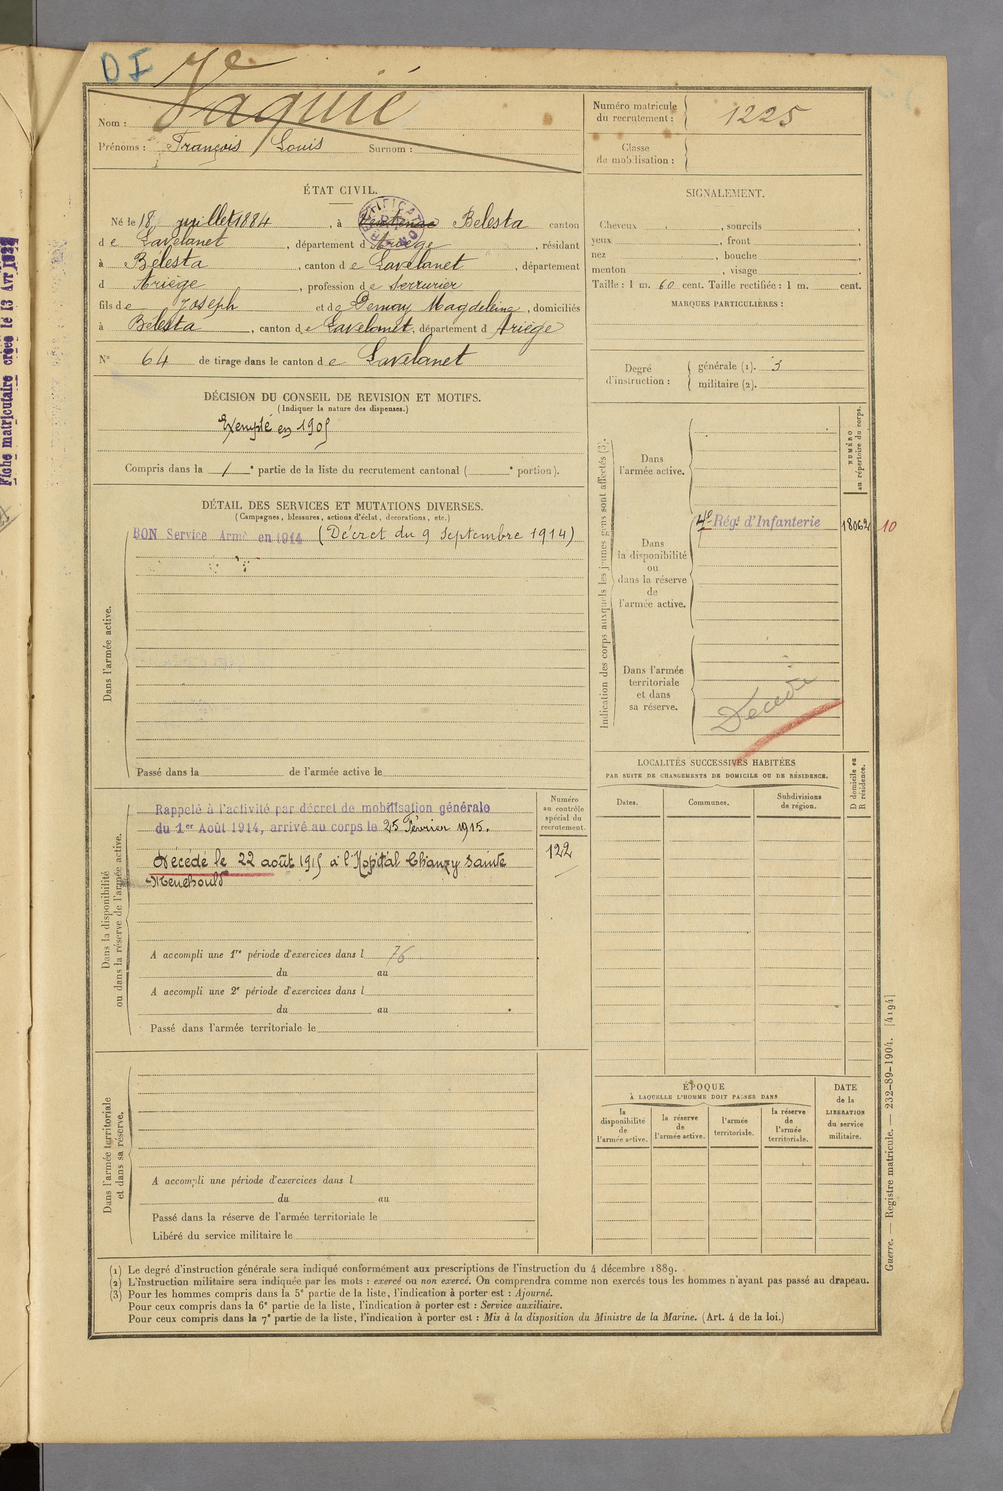 DI 7e
Nom : Vaquié
Prénoms : François Louis Surnom :
Numéro matricule
du recrutement : 1225
Classe
de mobilisation :
ÉTAT CIVIL.
Né le 18 juillet 1884, à Belesta canton
de Lavelanet, département d Ariège, résidant
à Bélesta, canton de Lavelanet, département
d Ariège, profession de serrurier
fils de Joseph et de Magdeleine, domiciliés
à Bélesta, canton de Lavelanet, département d Ariège
N° 64 de tirage dans le canton de Lavelanet
SIGNALEMENT.
Cheveux , sourcils ,
yeux , front ,
nez , bouche ,
menton , visage
Taille : 1 m. 60 cent. Taille rectifiée : 1 m. cent.
MARQUES PARTICULIÈRES :
Degré
d'instruction :
générale (1). 3
militaire (2).
DÉCISION DU CONSEIL DE REVISION ET MOTIFS.
(Indiquer la nature des dispenses.)
Exempté en 1905
Compris dans la 1 e partie de la liste du recrutement cantonal ( e portion).
DÉTAIL DES SERVICES ET MUTATIONS DIVERSES.
(Campagnes, blessures, actions d'éclat, décorations, etc.)
Dans l'armée active.
BON Service Armé en 1914 (Décret du 9 Septembre 1914)
Passé dans la de l'armée active le
Dans la disponibilité
ou dans la réserve de l'armée active.
Rappelé à l'activité par décret de mobilisation générale
du 1er Août 1914, arrivé au corps le 25 Février 1915.
Décédé le 22 août 1915 à l'Hopital Chanzy Sainte
Menehould
Numéro
au contrôle
spécial du
recrutement.
122
A accompli une 1re période d'exercices dans l 76
du au
A accompli une 2e période d'exercices dans l
du au
Passé dans l'armée territoriale le
Dans l'armée territoriale
et dans sa réserve.
A accompli une période d'exercices dans l
du au
Passé dans la réserve de l'armée territoriale le
Libéré du service militaire le
Indication des corps auxquels les jeunes gens sont affectés (3).
NUMÉRO
au répertoire du corps.
Dans
l'armée active.
Dans
la disponibilité
ou
dans la réserve
de
l'armée active.
4e Régt d'Infanterie 18062 10
Dans l'armée
territoriale
et dans
sa réserve.
Décédé
LOCALITÉS SUCCESSIVES HABITÉES
PAR SUITE DE CHANGEMENTS DE DOMICILE OU DE RÉSIDENCE.
D domicile ou
R résidence.
Dates. Communes. Subdivisions
de région.
ÉPOQUE
À LAQUELLE L'HOMME DOIT PASSER DANS
la
disponibilité
de
l'armée active.
la réserve
de
l'armée active.
l'armée
territoriale.
la réserve
de
l'armée
territoriale.
DATE
de la
LIBÉRATION
du service
militaire.
(1) Le degré d'instruction générale sera indiqué conformément aux prescriptions de l'instruction du 4 décembre 1889.
(2) L'instruction militaire sera indiquée par les mots : exercé ou non exercé. On comprendra comme non exercés tous les hommes n'ayant pas passé au drapeau.
(3) Pour les hommes compris dans la 5e partie de la liste, l'indication à porter est : Ajourné.
Pour ceux compris dans la 6e partie de la liste, l'indication à porter est : Service auxiliaire.
Pour ceux compris dans la 7e partie de la liste, l'indication à porter est : Mis à la disposition du Ministre de la Marine. (Art. 4 de la loi.)
Guerre. — Registre matricule. — 232-89-1904. [4194]
Fiche matriculaire créée le 13 Avr